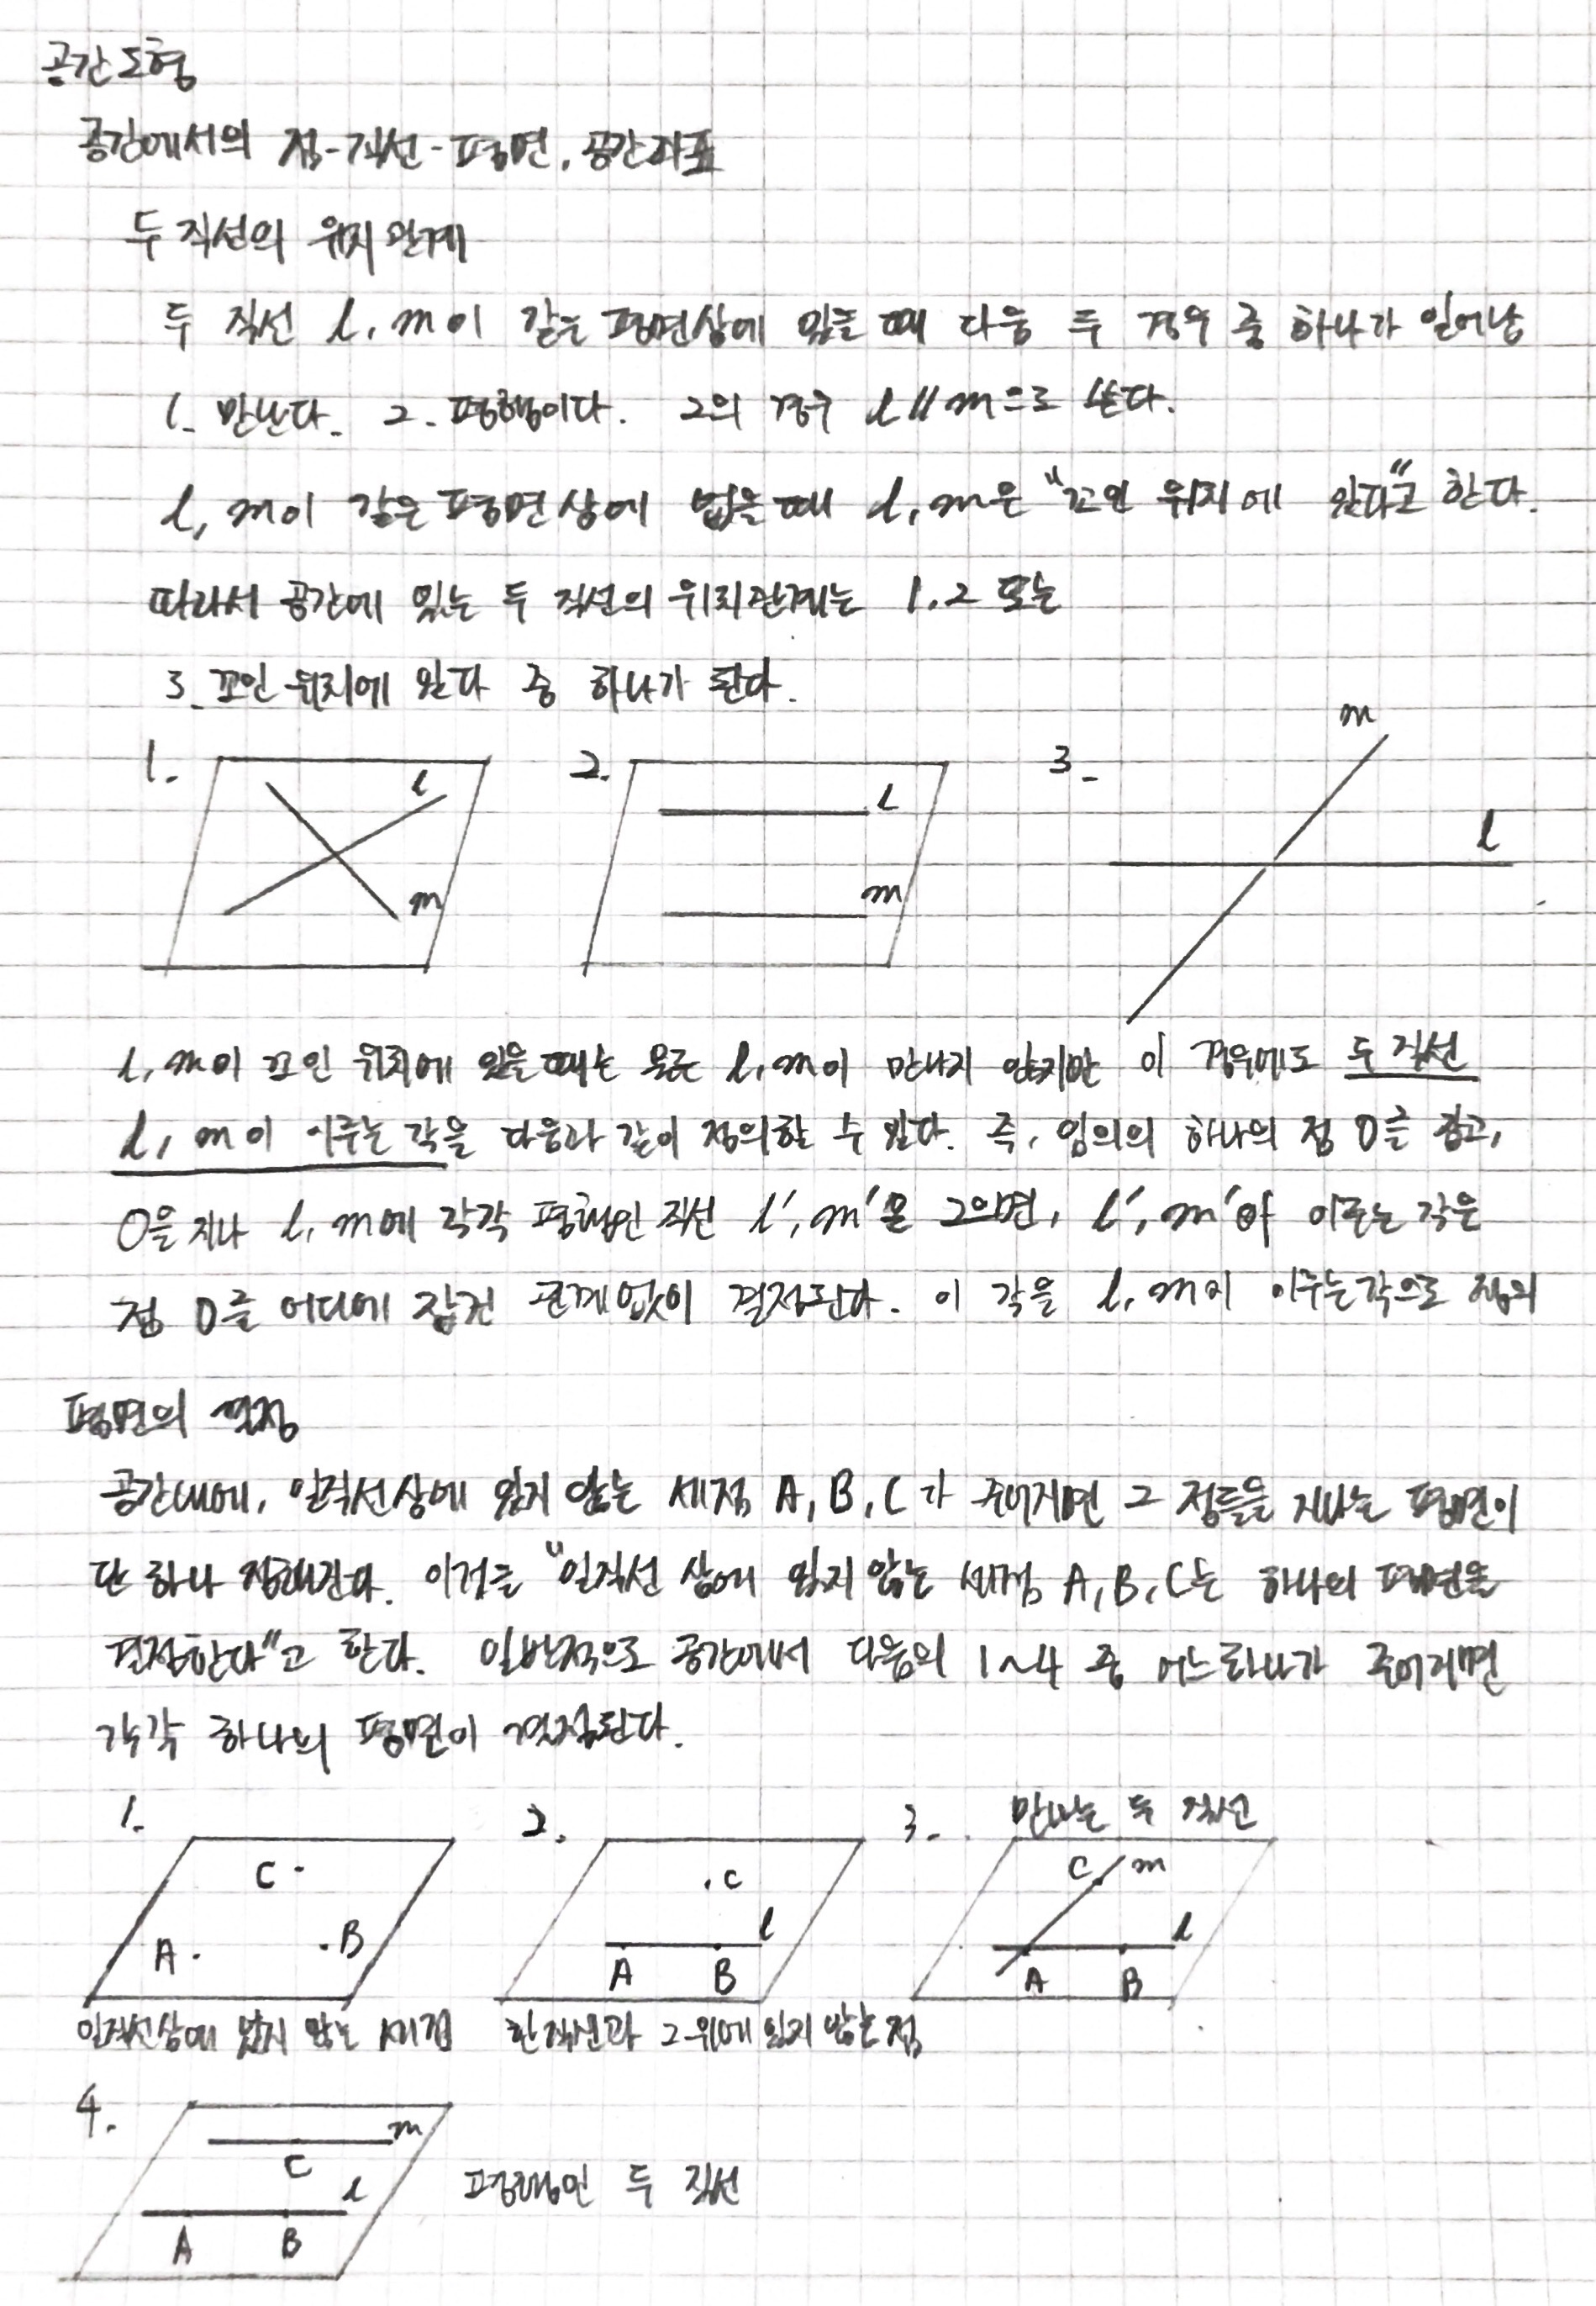 공간도형
공간에서의 점-직선-평면, 공간좌표
두 직선의 위치관계
두 직선 l, m이 같은 평면상에 있을 때 다음 두 경우 중 하나가 일어남
1. 만난다. 2. 평행이다. 2의 경우 l//m으로 쓴다.
l, m이 같은 평면상에 없을 때 l, m은 "꼬인 위치에 있다"고 한다.
따라서 공간에 있는 두 직선의 위치관계는 1, 2 또는
3. 꼬인 위치에 있다 중 하나가 된다.
1. l m
2. l m
3. m l
l, m이 꼬인 위치에 있을 때는 물론 l, m이 만나지 않지만 이 경우에도 두 직선
l, m이 이루는 각을 다음과 같이 정의할 수 있다. 즉, 임의의 하나의 점 O를 잡고,
O을 지나 l, m에 각각 평행인 직선 l', m'을 그으면, l', m'이 이루는 각은
점 O를 어디에 잡건 관계없이 결정된다. 이 각을 l, m이 이루는 각으로 정의
평면의 결정
공간내에, 일직선상에 있지 않는 세 점 A, B, C가 주어지면 그 점들을 지나는 평면이
단 하나 정해진다. 이것을 "일직선 상에 있지 않는 세 점 A, B, C는 하나의 평면을
결정한다"고 한다. 일반적으로 공간에서 다음의 1~4 중 어느 하나가 주어지면
각각 하나의 평면이 결정된다.
1. C A B
일직선상에 있지 않는 세 점
2. C l A B
한 직선과 그 위에 있지 않는 점
3. 만나는 두 직선
C m l A B
4. m C l A B
평행인 두 직선